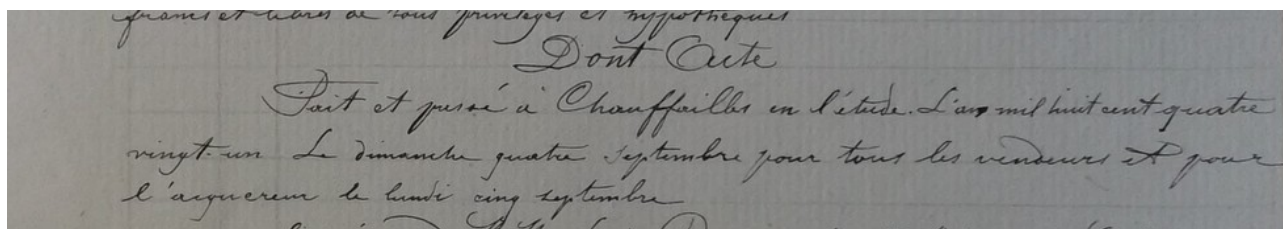 francs et libres de tous privilèges et hypothèques
Dont Acte
Fait et passé à Chauffailles en l'étude. L'an mil huit cent quatre
vingt-un Le dimanche quatre septembre pour tous les vendeurs et pour
l'acquereur le lundi cinq septembre